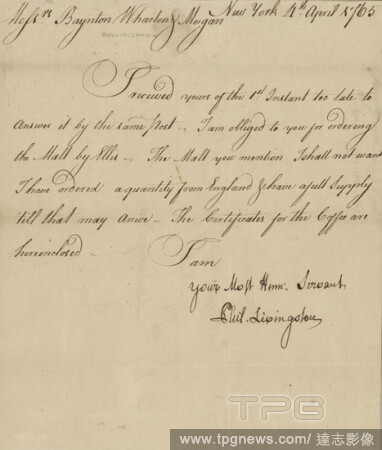 Messrs Baynton Wharton & Morgan New York 4th April 1765
I received yours of the 1st Instant too late to
Answer it by the same Post - I am obliged to you for ordering
the Malt by Ellis - The Malt you mention I shall not want
I have ordered a quantity from England & have a full Supply
till that may Arive - The Certificates for the Coffee are
hereinclosed -
I am
Your Most Hum. Servant
Phil. Livingston
TPG
www.tpgnews.com / 達志影像